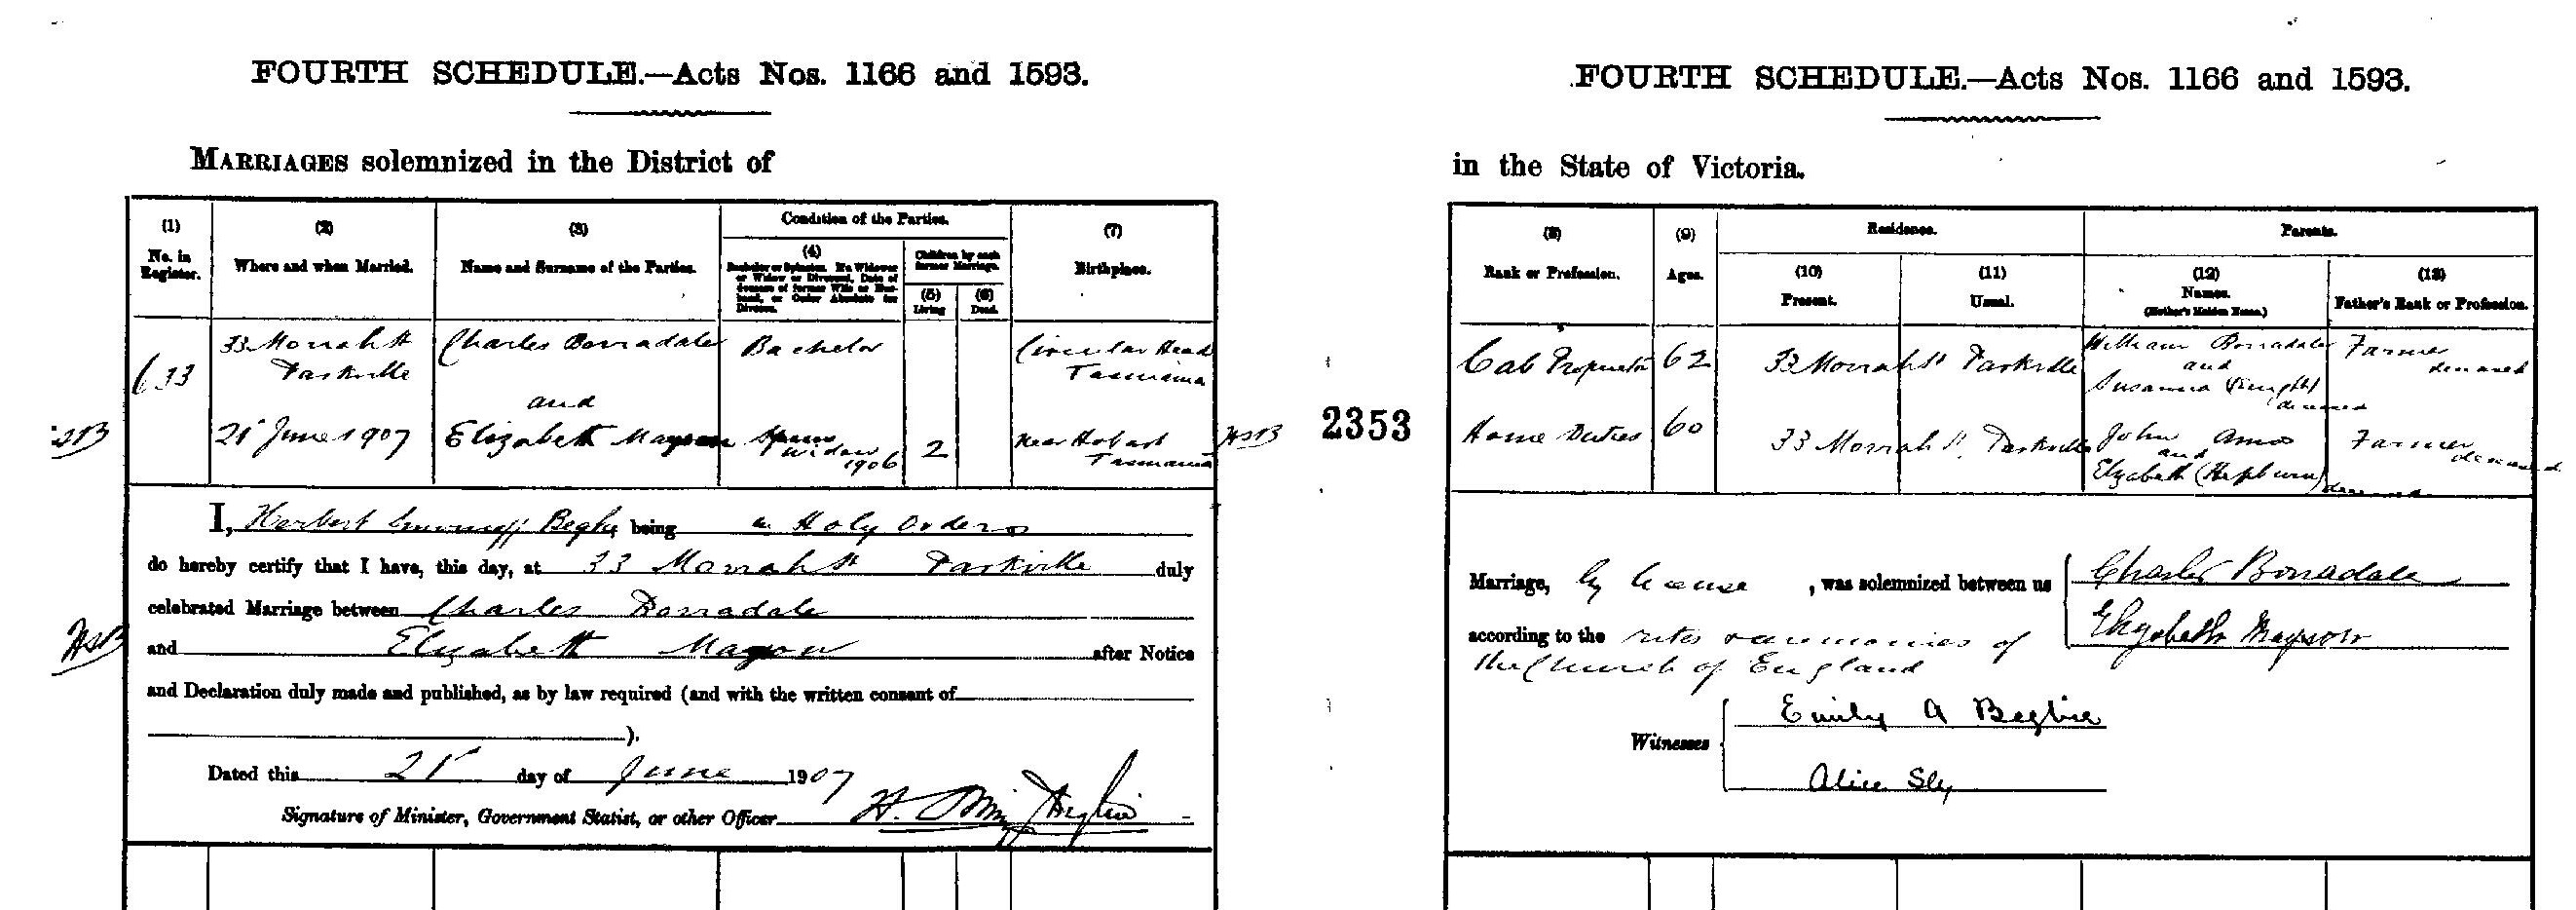 FOURTH SCHEDULE.—Acts Nos. 1166 and 1593.
MARRIAGES solemnized in the District of
(1)
No. in
Register.
(2)
Where and when Married.
(3)
Name and Surname of the Parties.
Condition of the Parties.
(4)
Bachelor or Spinster. If a Widower
or Widow or Divorced, Date of
decease of former Wife or Hus-
band, or Order Absolute for
Divorce.
Children by each
former Marriage.
(5)
Living
(6)
Dead.
(7)
Birthplace.
633
33 Morrah St
Parkville
21st June 1907
Charles Borradale
and
Elizabeth Mayson
Bachelor
Widow
1906
2
Circular Head
Tasmania
near Hobart
Tasmania
HSB
HSB
I, Herbert Begbie, being in Holy Orders
do hereby certify that I have, this day, at 33 Morrah St Parkville duly
celebrated Marriage between Charles Borradale
HSB
and Elizabeth Mayson after Notice
and Declaration duly made and published, as by law required (and with the written consent of
).
Dated this 21st day of June 1907
Signature of Minister, Government Statist, or other Officer H. Begbie
FOURTH SCHEDULE.—Acts Nos. 1166 and 1593.
in the State of Victoria.
(8)
Rank or Profession.
(9)
Ages.
Residence.
(10)
Present.
(11)
Usual.
Parents.
(12)
Names.
(Mother's Maiden Name.)
(13)
Father's Rank or Profession.
2353
Cab Proprietor
62
33 Morrah St Parkville
William Borradale
and
Susanna (Knight)
deceased
Farmer
deceased
Home Duties
60
33 Morrah St. Parkville
John Amos
and
Elizabeth (Hepburn)
deceased
Farmer
deceased
Marriage, by license, was solemnized between us
Charles Borradale
Elizabeth Mayson
according to the rites & ceremonies of
the Church of England
Witnesses
Emily A Begbie
Alice Sly